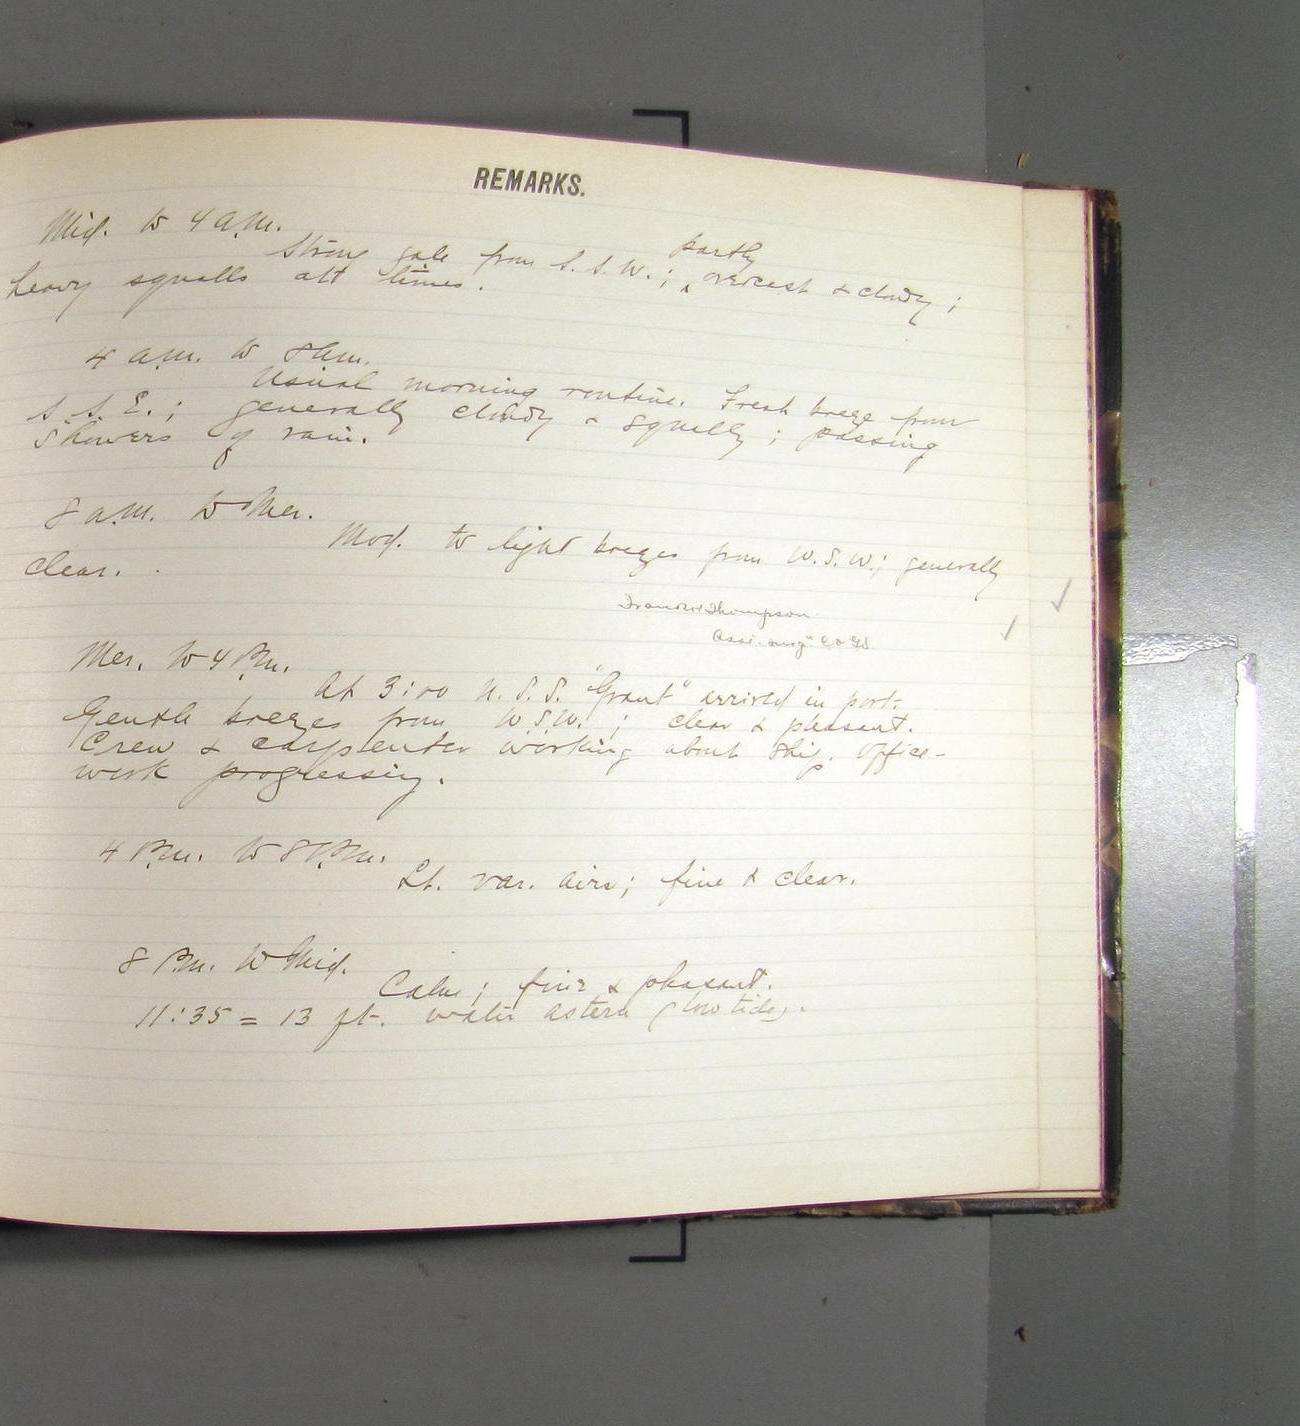 REMARKS.
Mid. to 4 a.m.
Strong gale from S.S.W.; partly overcast & cloudy;
heavy squalls att times.
4 a.m. to 8 a.m.
Usual morning routine. Fresh breeze from
S.S.E.; generally cloudy & squally; passing
showers of rain.
8 a.m. to Mer.
Mod. to light breezes from W.S.W.; generally
clear.
Thompson
Asst. surg. C & G S.
Mer. to 4 P.m.
At 3:00 U.S.S. "Grant" arrived in port.
Gentle breezes from W.S.W.; clear & pleasant.
Crew & carpenter working about ship. Office-
work progressing.
4 P.m. to 8 P.m.
Lt. var. airs; fine & clear.
8 P.m. to Mid.
Calm; fine & pleasant.
11:35 = 13 ft. water astern (low tide).